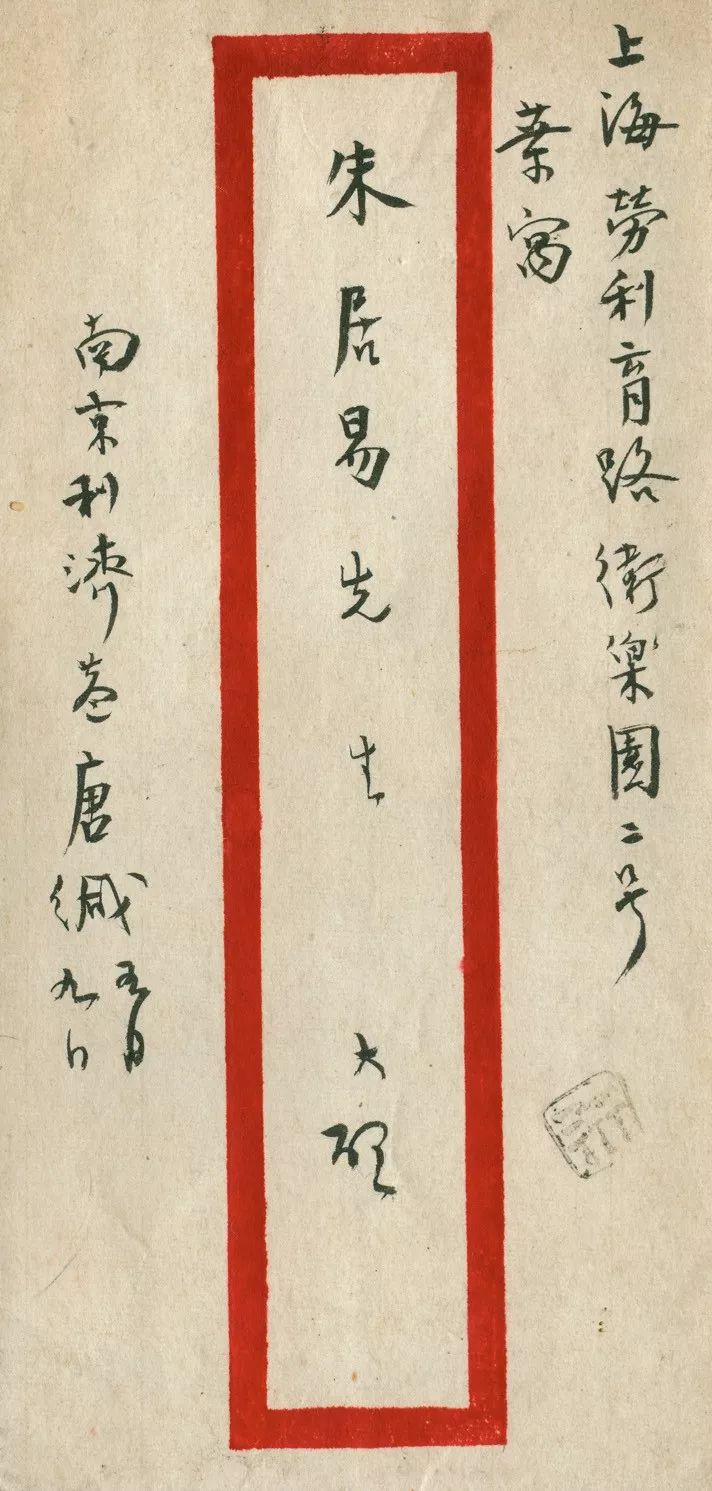 上海劳利育路衛樂園二号
葉寓
朱居易先生 大啟
南京利濟巷唐缄
五月
九日